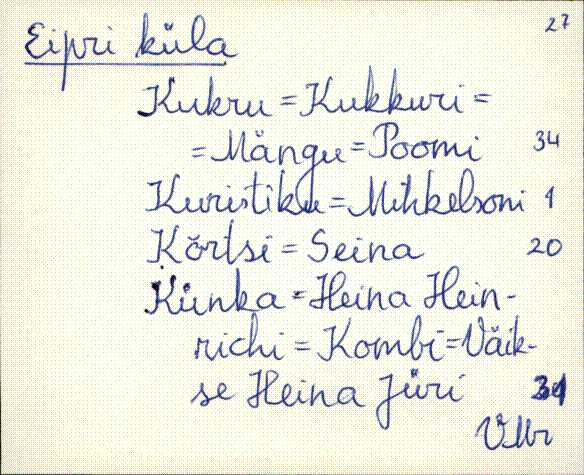 27
Eipri küla
Kukru = Kukkuri =
= Mängu = Poomi 34
Kuristiku = Mihkelsoni 1
Kõrtsi = Seina 20
Künka = Heina Hein-
richi = Kombi = Väik-
se Heina Jüri
VMr